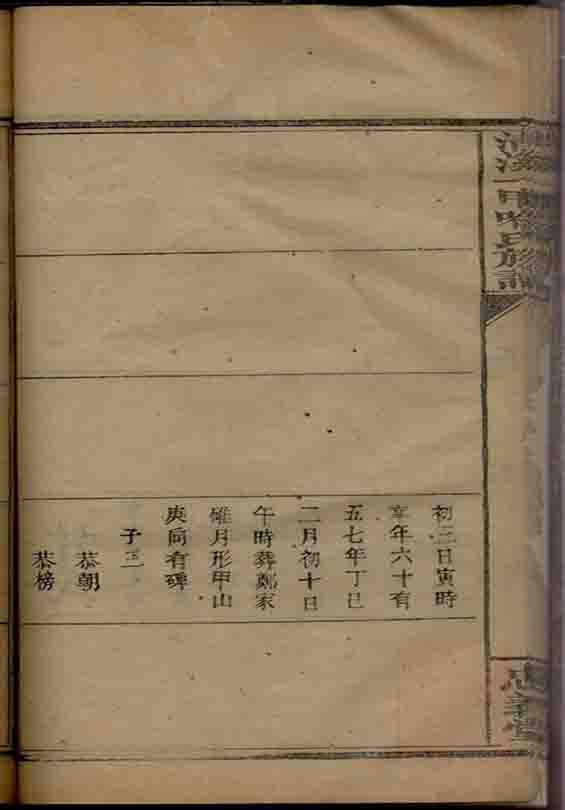 初三日寅時
享年六十有
五七年丁巳
二月初十日
午時葬鄭家
碓月形甲山
庚向有碑
子二
恭朝
恭榜